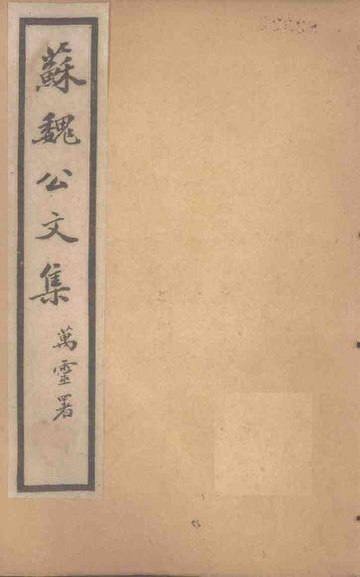 蘇魏公文集
萬靈署